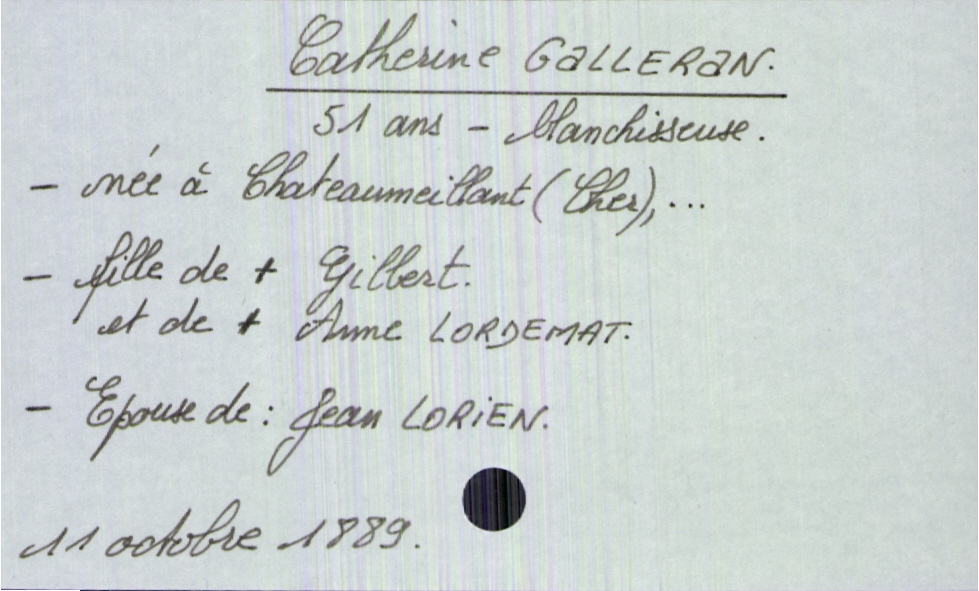 Catherine GALLERAN.
51 ans - blanchisseuse.
- née à Chateaumeillant (Cher), ...
- fille de + Gilbert.
et de + Anne LORDEMAT.
- Epouse de : Jean LORIEN.
11 octobre 1889.